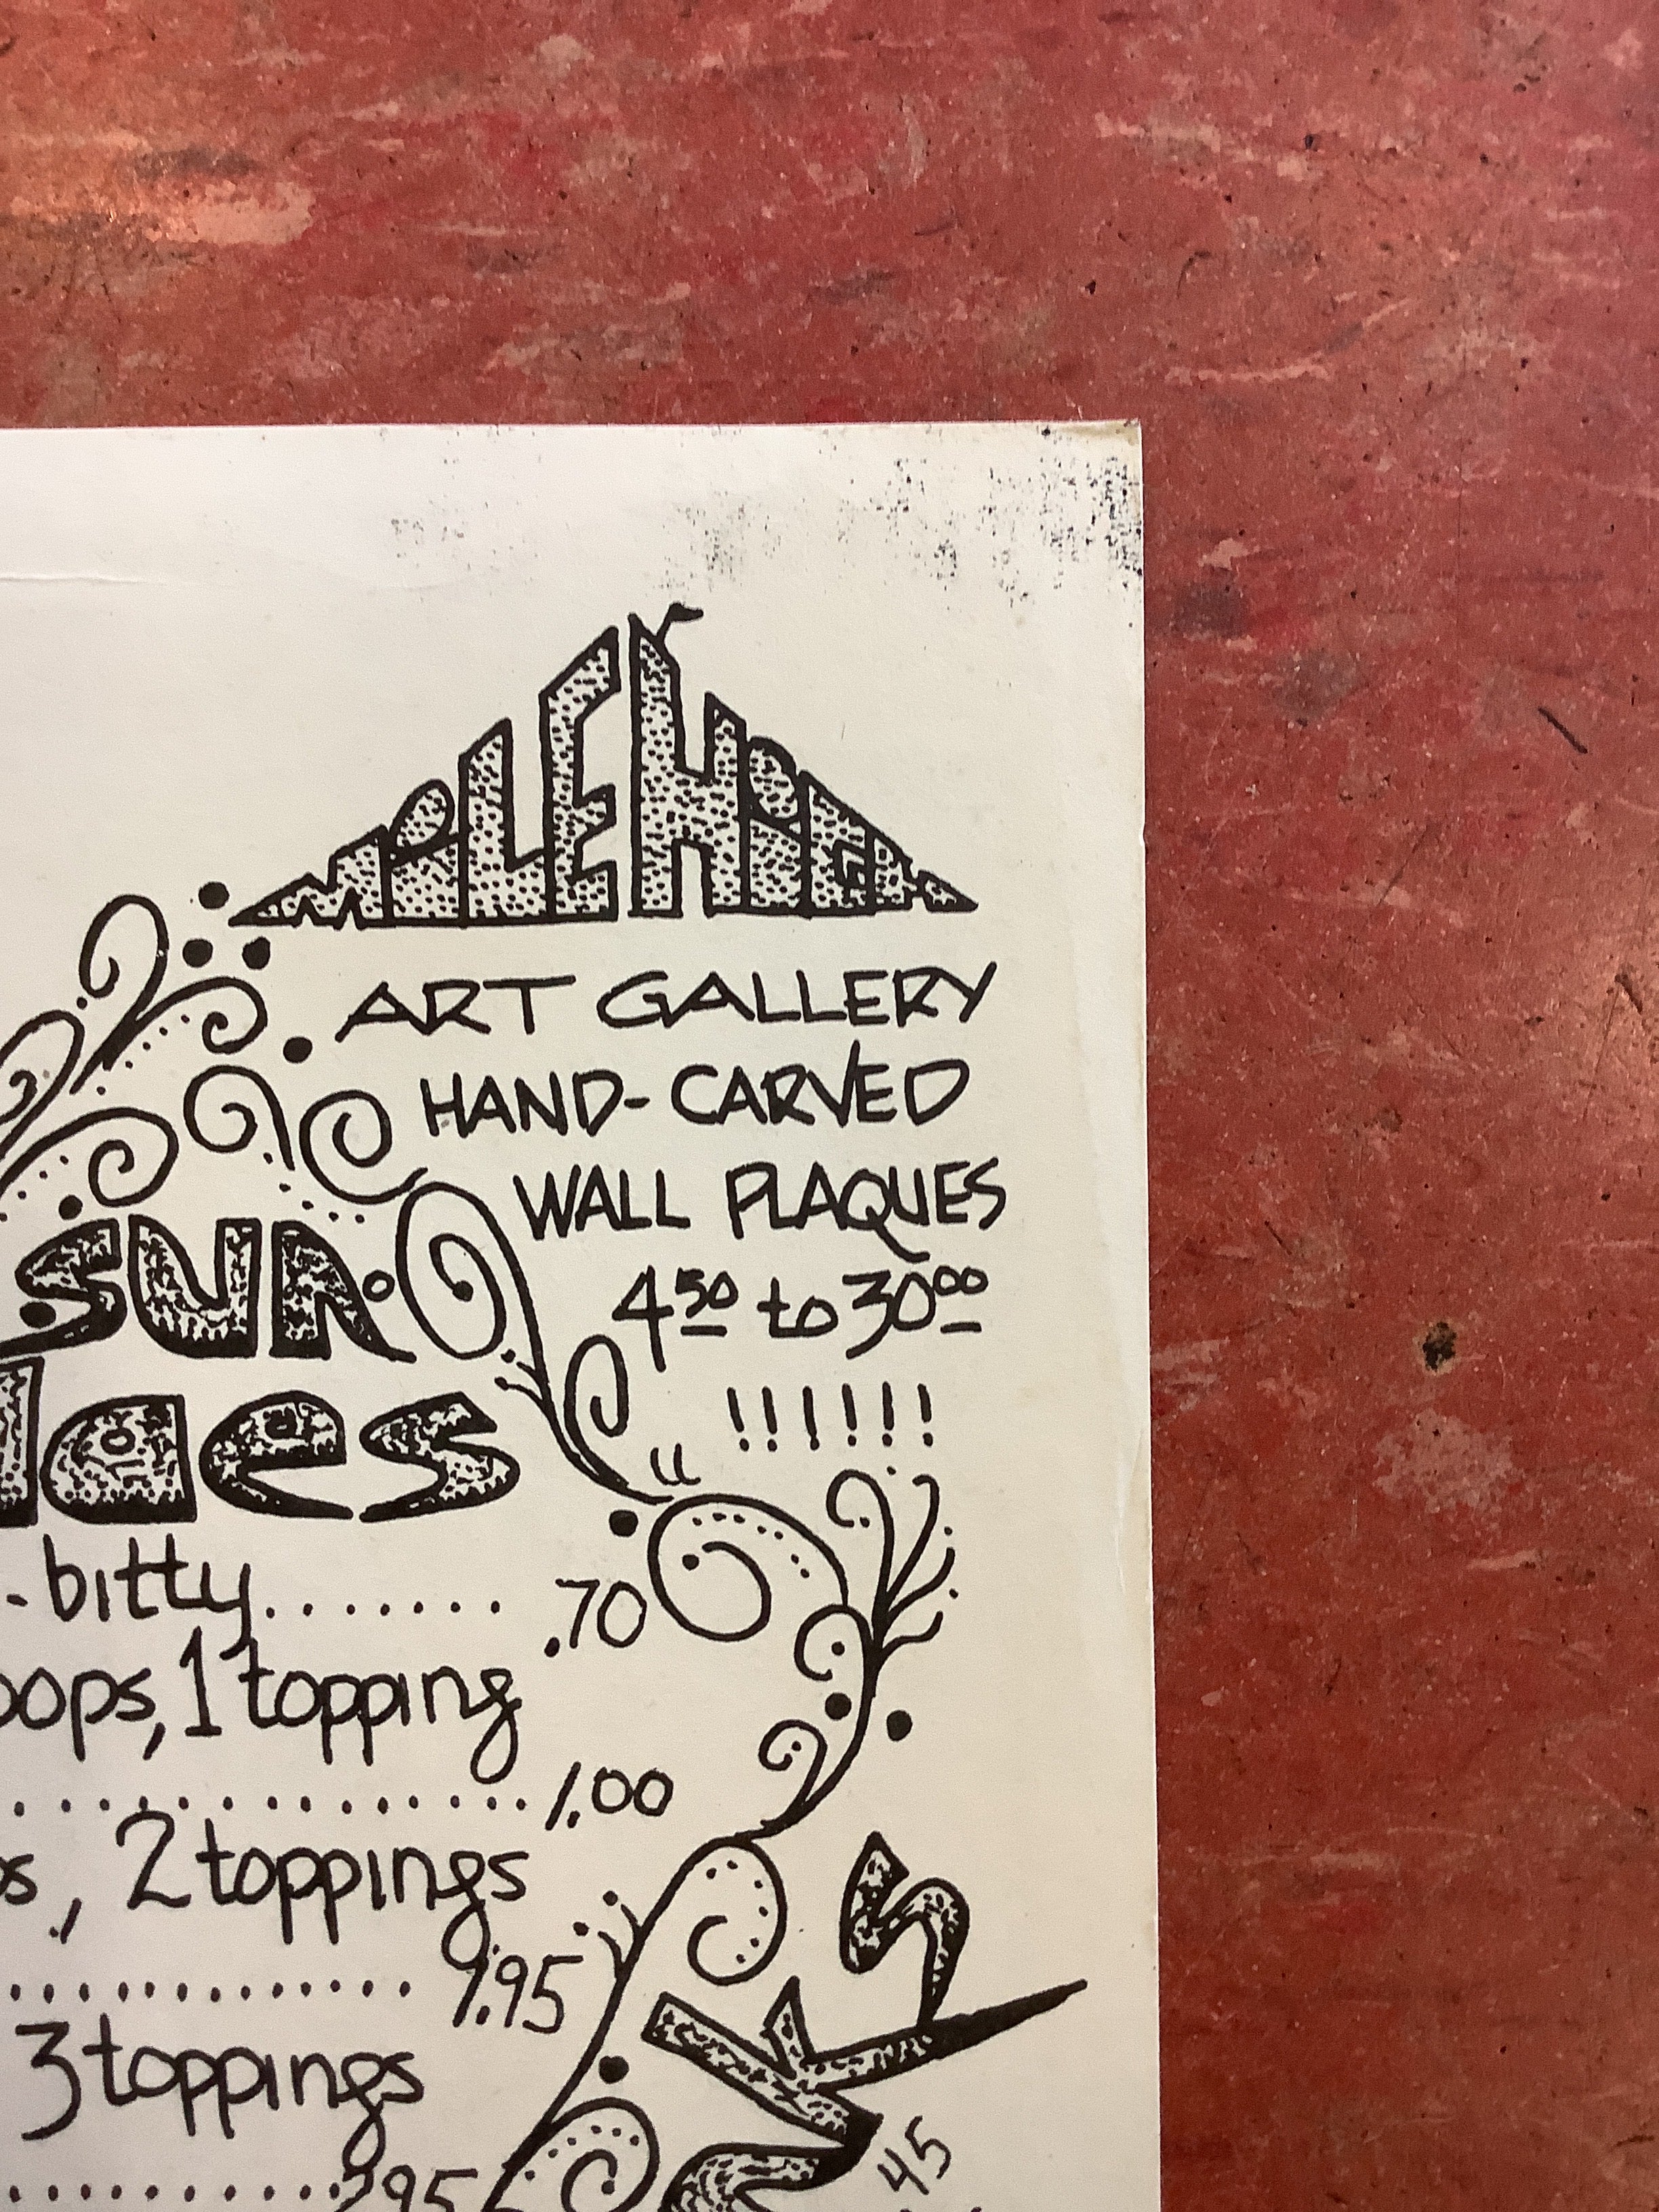 ART GALLERY
HAND-CARVED
WALL PLAQUES
4.50 to 30.00
!!!!!!
SUN
daes
-bitty........ .70
oops, 1 topping
.................. 1.00
s, 2 toppings
............. 1.95
3 toppings
............ 2.95
45